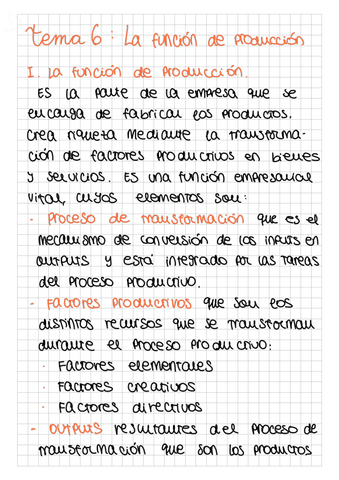 Tema 6: La función de producción
I. La función de producción.
Es la parte de la empresa que se
encarga de fabricar los productos.
Crea riqueza mediante la transforma-
ción de factores productivos en bienes
y servicios. Es una función empresarial
vital, cuyos elementos son:
- Proceso de transformación que es el
mecanismo de conversión de los inputs en
outputs y está integrado por las tareas
del proceso productivo.
- Factores productivos que son los
distintos recursos que se transforman
durante el proceso productivo:
· Factores elementales
· Factores creativos
· Factores directivos
- Outputs resultantes del proceso de
transformación que son los productos